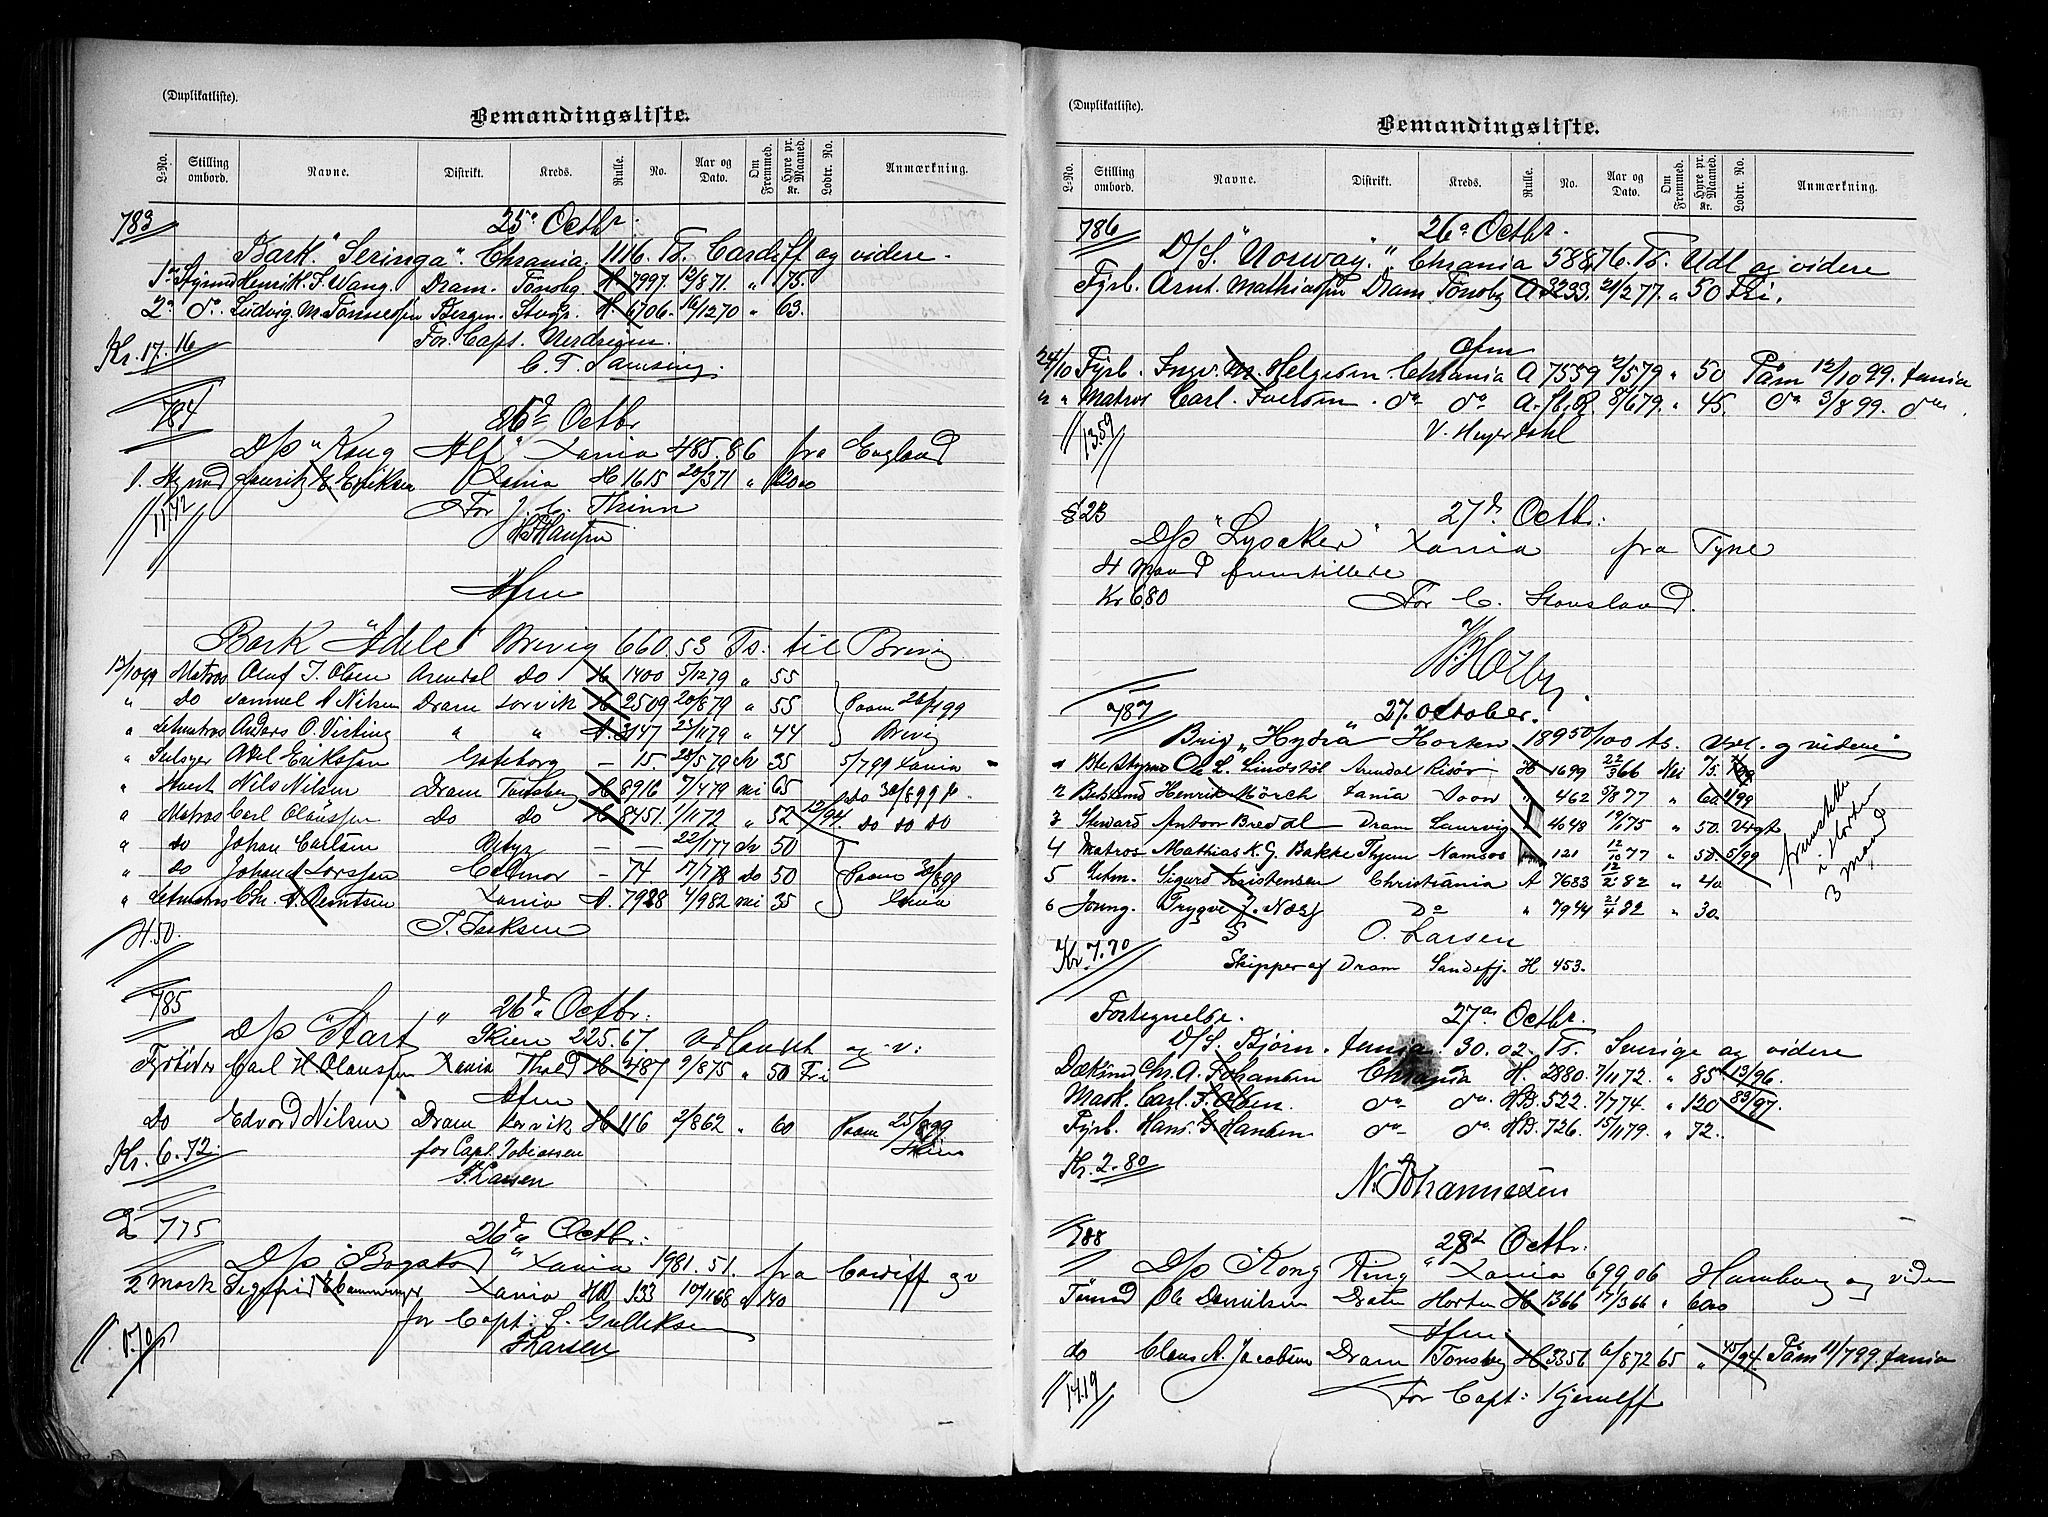 (Duplikatliste).
Bemandingsliste.
L-No. Stilling ombord. Navne. Distrikt. Kreds. Rulle. No. Aar og Dato. Om Fremmed. Hyre pr. Maaned. Kr. Lodtr. No. Anmærkning.
783 25d Octbr.
Bark. "Seringa". Chrania. 1116. Ts. Cardiff og videre.
1ste Styrmd Henrik. F. Wang. Dram. Tönsbg. A. 7997. 12/871. " 75.
2n do. Ludvig M. Tönnessen Bergen. Stvgr. H. 6706. 16/1270 " 63.
Kr. 17.16 For. Capt.
C. F. Samsing.
784 26d Octbr
D/s "Kong Alf" Xania 485.86 fra England
1. Stymd Lauritz E. Eriksen Xania H 1615 20/371 " 120 00
11.72 For J. C. Thinn
H. Hansen
Afm
Bark "Adele" Brevig 660.53 Ts. til Brevig
12/1099 Matros Oluf J. Olsen Arendal Do H 1400 5/1279 " 55
" Do Samuel A Nilsen Dram Lorvik H 2509 20/879 " 55 Paam 26/499
" Letmatros Anders O. Visting " " A. 3147 23/1179 " 44 Brevig
" Axel Eriksen Göteborg — 15 28/579 do 35 5/799 Xania
" Hvert Nils Nilsen Dram Tönsberg H 8916 7/479 nei 65 do 30/899 do
" Matros Carl Olaussen Do do H 8451 1/172 " 52 12/94 do do do
" do Johan Carlsen — — 22/177 do 50
" do Johan A Larssen — 74 17/778 do 50 Paam 30/899
" Letmatros Chr. A. Berntsen Xania A. 7928 4/982 nei 35 Xania
4.50. J. Isaksen
785 26d Octbr.
D/s "Start" Skien 225.67 Udlandet og v:
Fyrböder Carl H Olaussen Xania H 487 9/875 " 50 Fri
Afm
Do Edvard Nilsen Dram Lorvik H 116 2/862 " 60 Paam 25/899
Kr. 6.72. for Capt. Tobiassen Skien
J. Larsen
775 26d Octbr.
D/s "Bogstad" Xania 1981.51. fra Cardiff og v
2 Mask Sigfrid Xania HD 133 10/1168 " 140
for Capt: S. Gulliksen
J. Larsen
(Duplikatliste).
Bemandingsliste.
L-No. Stilling ombord. Navne. Distrikt. Kreds. Rulle. No. Aar og Dato. Om Fremmed. Hyre pr. Maaned. Kr. Lodtr. No. Anmærkning.
786 26d Octbr.
D/S. "Norway." Chrania 588.76. Ts. Udl og videre
Fyrb. Arnt. Mathiassen Dram Tönsbg A 3233. 21/277. " 50 Fri.
Afm
24/10 Fyrb. Ingv. M. Helgesen. Chrania A 7559 2/579 " 50 Påm 12/1099. Xania
" " Matros Carl. Iversen. do do A. 8/679. " 45. do 3/899. do
13.59 V. Heyerdahl
§ 23 27d Octbr.
D/s "Lysaker" Xania fra Tyne
4 Mand fremstillede
Kr 6.80 For C. Stousland.
787 27. October.
Brig "Hydra" Horten 189 50/100 ts. Udl. og videre
1 Bte Styrmd Ole L. Lindstøl Arendal Risör H 1699 22/366 Nei 75.
2 Henrik Mörch Xania " 462 5/877 " 60
3 Steward Anton Bredal Dram Laurvig 4048 19/175 " 50.
4 Matros Mathias K. G. Bakke Thjem Namsos 121 12/1077 " 50. 5/99
5 Letm. Sigurd Kristensen Christiania A 7683 12/282 " 40
6 Joung. Trygve J. Næss Do " 7944 21/482 " 30.
i Horten 3 mand
Kr. 7.70 O. Larsen
Skipper af Dram Sandefj. H 453.
Fortegnelse. 27de Octbr.
D/S. Bjørn. Xania. 30.02. Ts. Sverige og videre
Dæksmd Chr. A. Johansen Chrania H. 2880. 7/1172. " 85 13/96.
Mask. Carl. F. Olsen. do do. HD. 522. 7/774. " 120 83/97.
Fyrb. Hans. G Hansen do do. HD. 726. 15/1179. " 72.
Kr. 2.80 N. Johannesen
788 28d Octbr.
D/s "Kong Ring" Xania 699,06 Hamburg og viden
Tömmd Ole Danielsen Horten H 1366 17/366 " 60 00
Afm
do Claus A. Jacobsen Dram Tönsbg H 3356 6/872 65 " 45/94. Påm 11/799. Xania
14.19 For Capt: Kjerulff